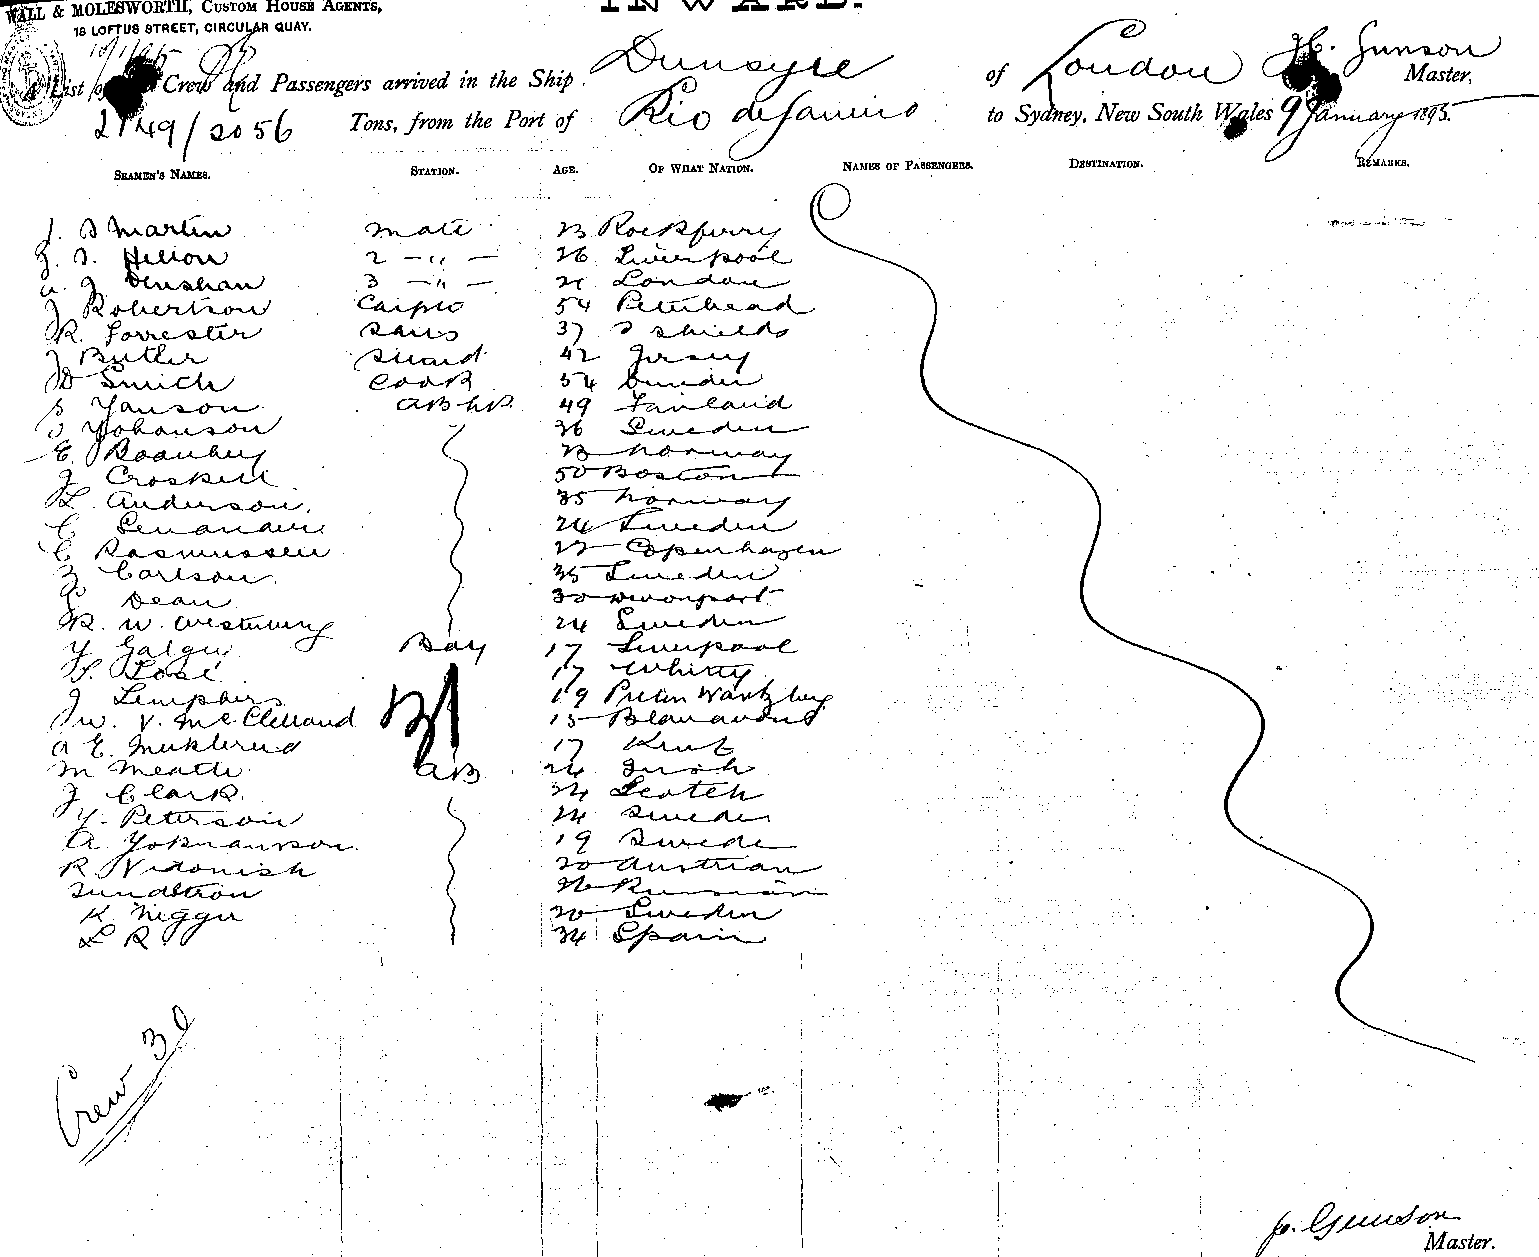 INWARD.
WALL & MOLESWORTH, CUSTOM HOUSE AGENTS,
18 LOFTUS STREET, CIRCULAR QUAY.
A List of Crew and Passengers arrived in the Ship Dunsyre of London H. Gunson Master,
2149/2056 Tons, from the Port of Rio de Janeiro to Sydney, New South Wales 9 January 1895.
SEAMEN'S NAMES. STATION. AGE. OF WHAT NATION. NAMES OF PASSENGERS. DESTINATION. REMARKS.
J. S Martin Mate 23 Rockferry
J. S. Hilton 2 -"- 26 Liverpool
A. J Denshan 3 -"- 21 London
J Robertson Carptr 54 Peterhead
R. Forrester Sails 37 S Shields
J Butler Stuard 42 Jersey
D Smith Cook 54 Dundee
S Yanson AB 49 Finland
S Yohanson 26 Sweden
E. 23 Norway
J Croskill 50 Boston
L. Anderson. 35 Norway
C 24 Sweden
C Rasmussen 27 Copenhagen
Z Carlson. 35 Sweden
Dean 30 Devonport
R. W. 24 Sweden
Y Boy 17 Liverpool
S. 17 Whitby
J 19
W. V. McClelland 15
A E. 17 Kent
M Meath AB 24 Irish
J Clark. 34 Scotch
Y. Peterson 24 Sweden
A. 19 Sweden
R Vidonish 20 Austrian
Sundstron 26 Russian
K. 20 Sweden
L R 34 Spain
Crew 30
H. Gunson
Master.